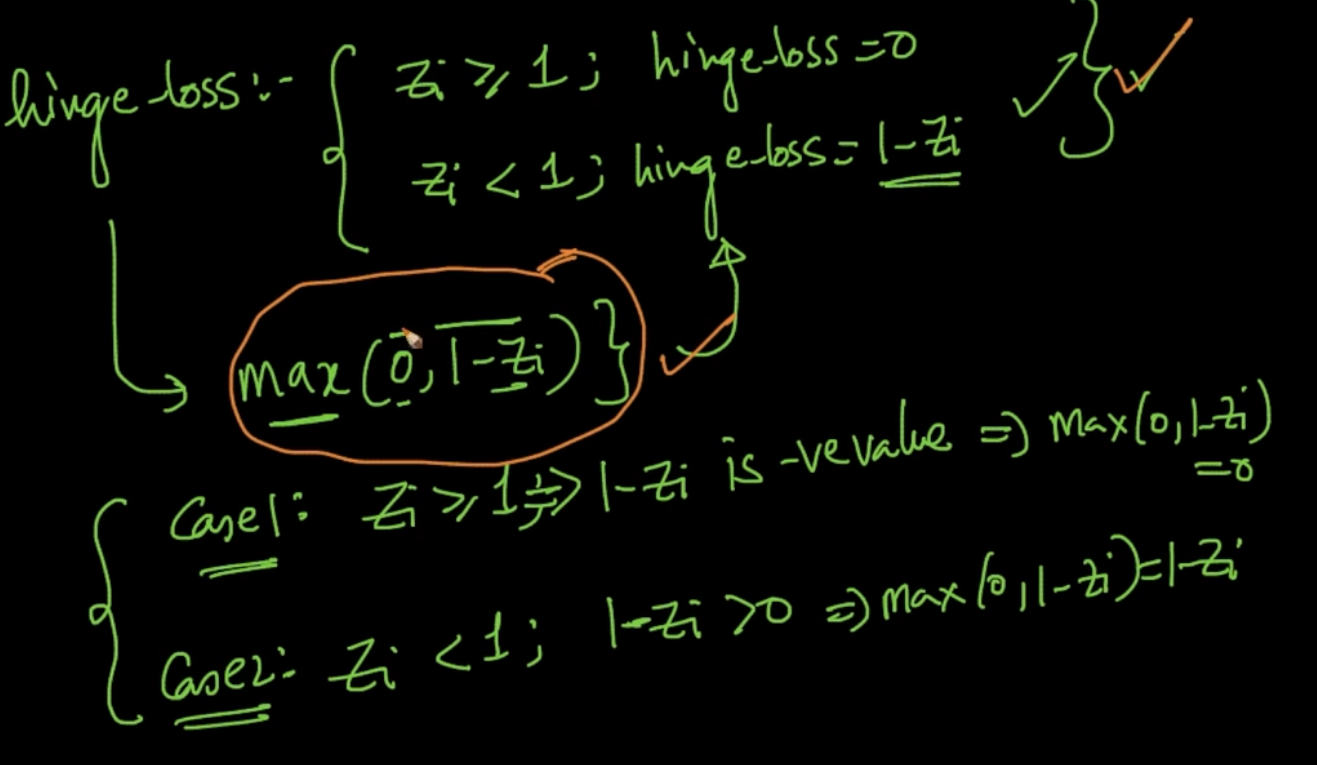 hinge-loss:- { Zi ≥ 1; hinge-loss = 0
Zi < 1; hinge-loss = 1-Zi }
max(0, 1-Zi) }
Case1: Zi ≥ 1; => 1-Zi is -ve value => Max(0, 1-Zi)
=0
Case2:- Zi < 1; 1-Zi >0 => max(0, 1-Zi)=1-Zi